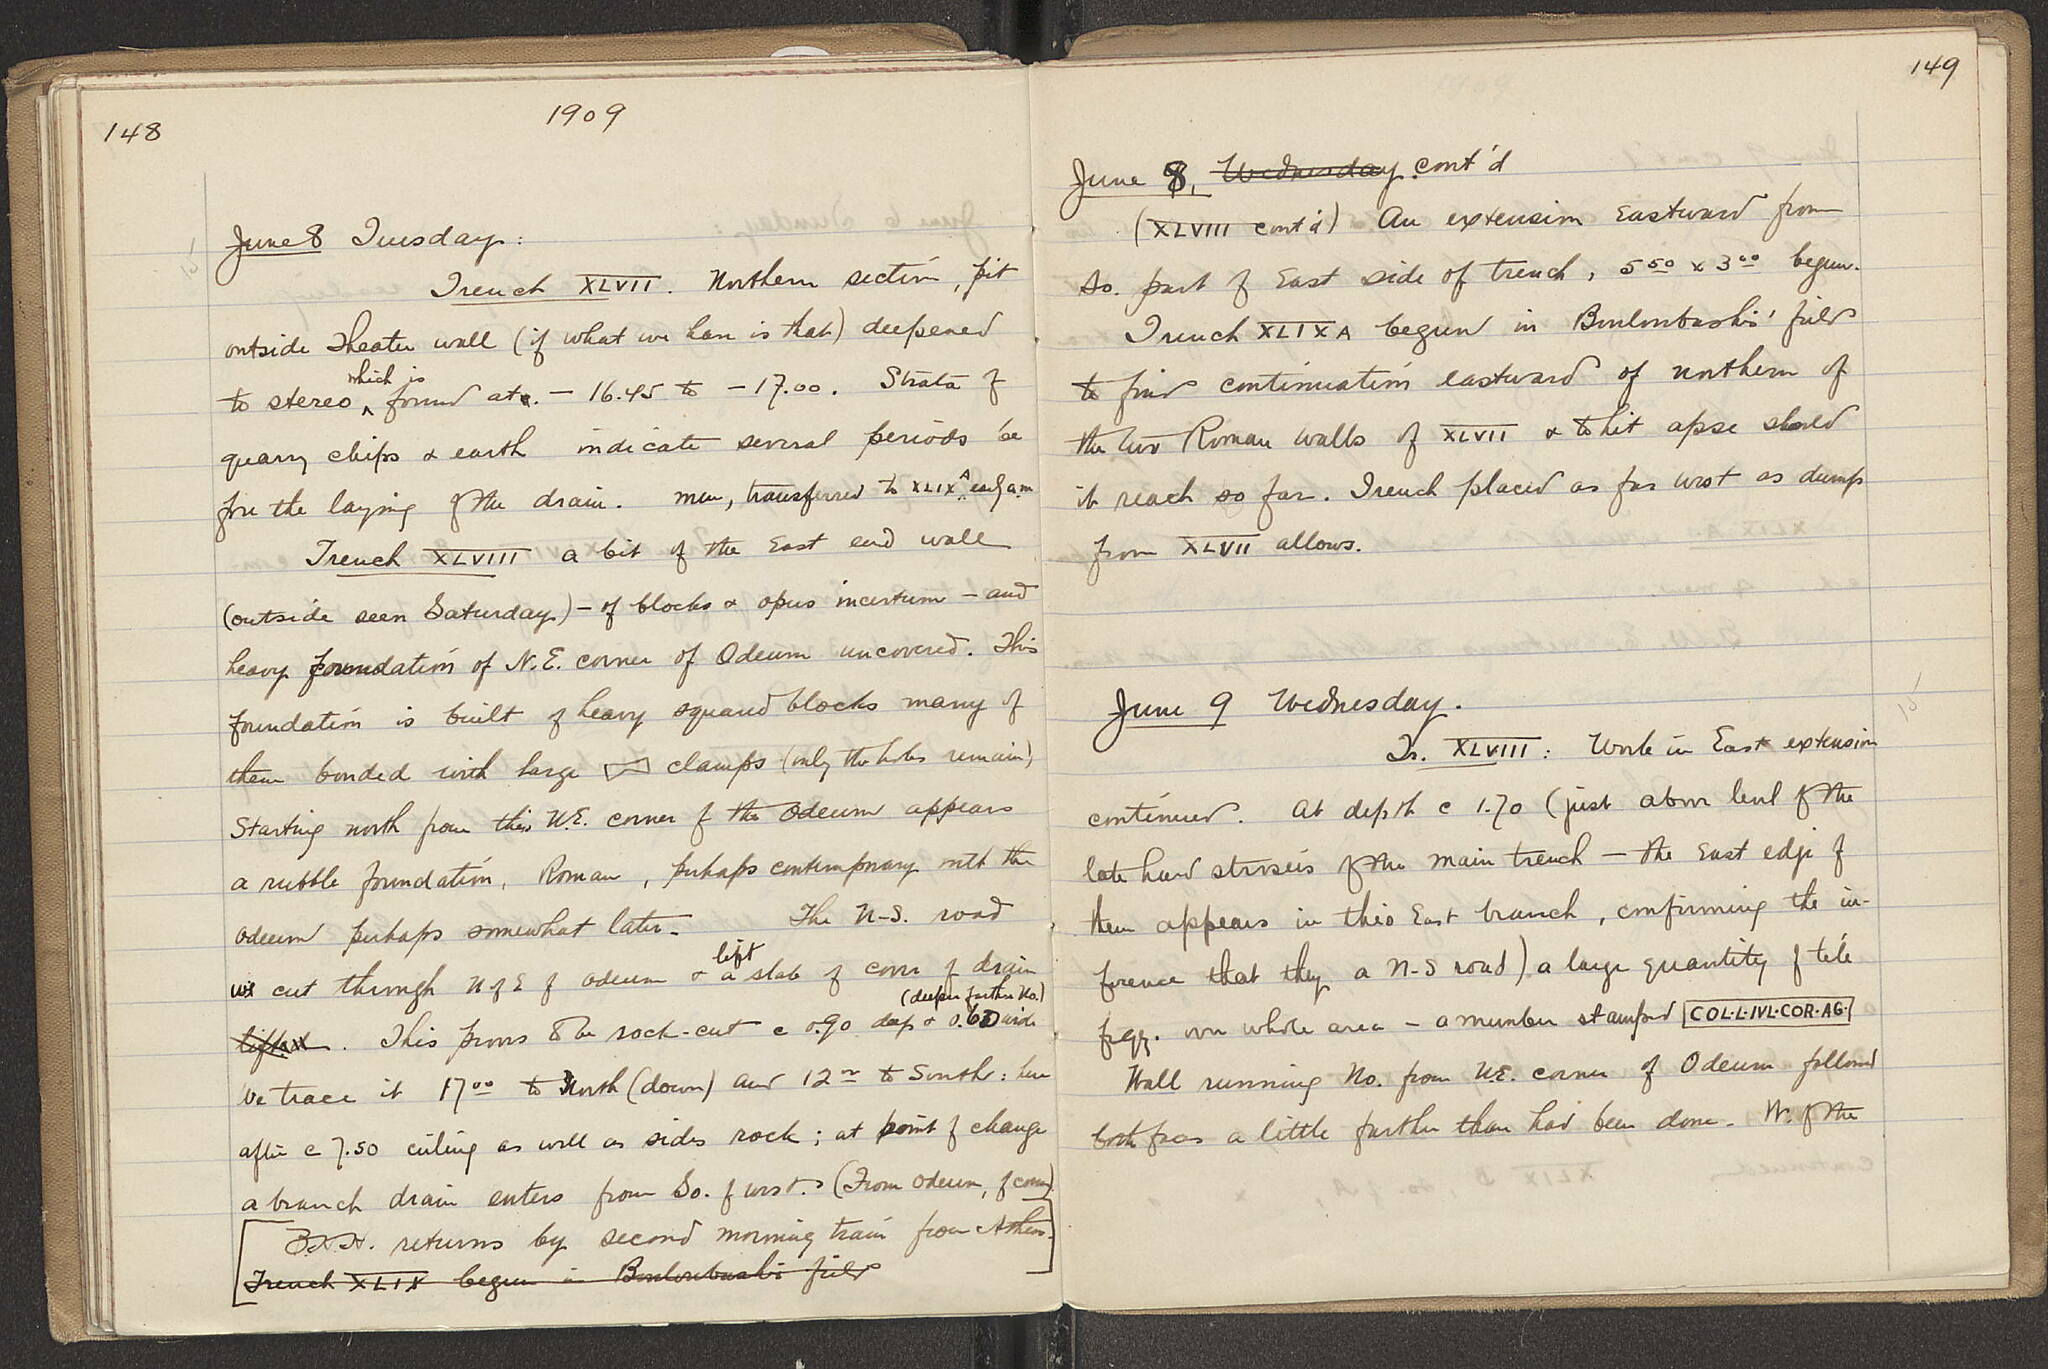 148
1909
June 8 Tuesday:
Trench XLVII. Northern section, pit
outside Theater wall (if what we have is that) deepened
to stereo which is found at c. – 16.45 to – 17.00. Strata of
quarry chips & earth indicate several periods be
fore the laying of the drain. Men, transferred to XLIX A early a.m
Trench XLVIII a bit of the East end wall
(outside seen Saturday) – of blocks & opus incertum – and
heavy foundation of N.E. corner of Odeum uncovered. This
foundation is built of heavy squared blocks many of
them bonded with large clamps (only the holes remain)
Starting north from this N.E. corner of the Odeum appears
a rubble foundation, Roman, perhaps contemporary with the
Odeum perhaps somewhat later. The N–S. road
we cut through N of E of Odeum & lift a slab of cover of drain
lifted. This proves to be rock-cut c 0.90 deep (deeper further No.) & 0.60 wide
We trace it 17⁰⁰ to North (down) and 12ᵐ to South: here
after c 7.50 ceiling as well as sides rock; at point of change
a branch drain enters from So. of west. (From Odeum, of course)
B.H.H. returns by second morning train from Athens.
Trench XLIX begun in Bouloubashis' field
149
June 8, Wednesday cont'd
(XLVIII cont'd) An extension Eastward from
So. part of East side of trench, 5⁵⁰ x 3⁰⁰ begun.
Trench XLIX A begun in Bouloubashis' field
to find continuation eastward of northern of
the two Roman walls of XLVII & to hit apse should
it reach so far. Trench placed as far west as dumps
from XLVII allows.
June 9 Wednesday.
Tr. XLVIII: Work in East extension
continued. At depth c 1.70 (just above level of the
late hard stroseis of the main trench – the East edge of
them appears in this East branch, confirming the in-
ference that they a N–S road) a large quantity of tile
fragg. over whole area – a number stamped COL·L·IVL·COR·AG·
Wall running No. from N.E. corner of Odeum followed
both faces a little further than had been done. W. of the